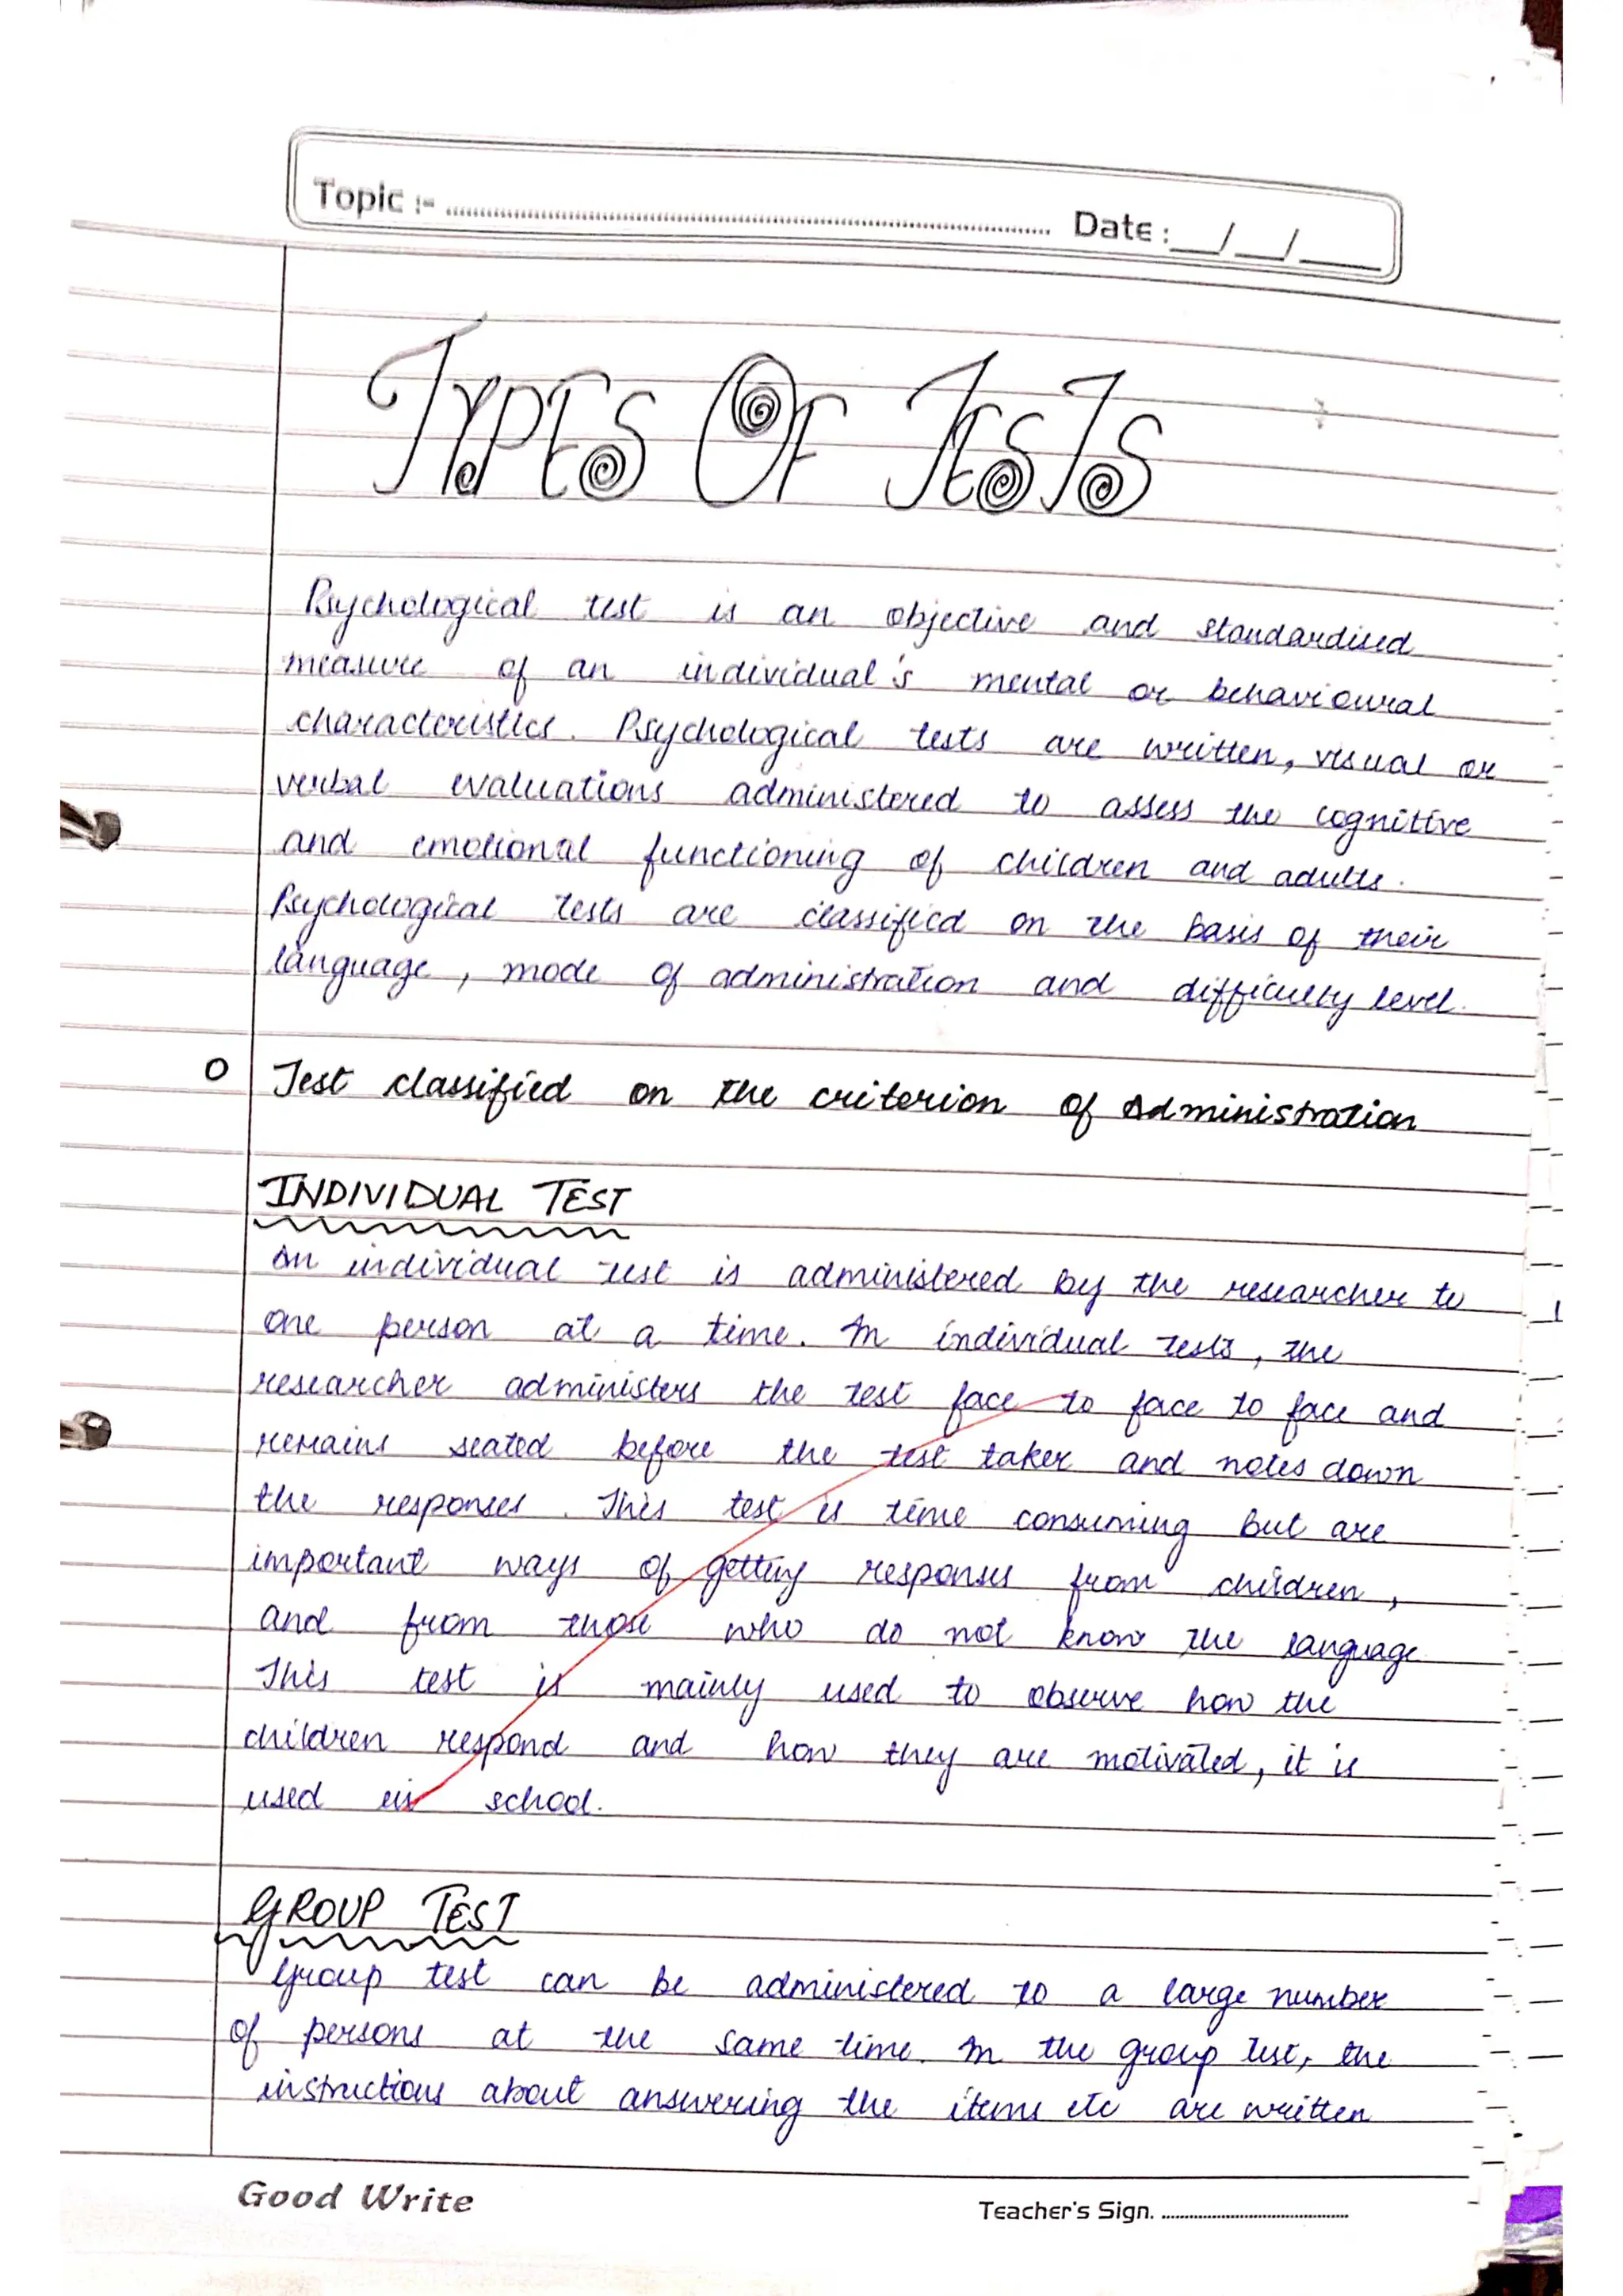 Topic :- Date : __/__/____
TYPES OF TESTS
Psychological test is an objective and standardised
measure of an individual's mental or behavioural
characteristics. Psychological tests are written, visual or
verbal evaluations administered to assess the cognitive
and emotional functioning of children and adults.
Psychological tests are classified on the basis of their
language, mode of administration and difficulty level.
o Test classified on the criterion of Administration
INDIVIDUAL TEST
An individual test is administered by the researcher to
one person at a time. In individual tests, the
researcher administers the test face to face to face and
remains seated before the test taker and notes down
the responses. This test is time consuming but are
important ways of getting responses from children,
and from those who do not know the language
This test is mainly used to observe how the
children respond and how they are motivated, it is
used in school.
GROUP TEST
Group test can be administered to a large number
of persons at the same time. In the group test, the
instructions about answering the items etc are written
Good Write Teacher's Sign.